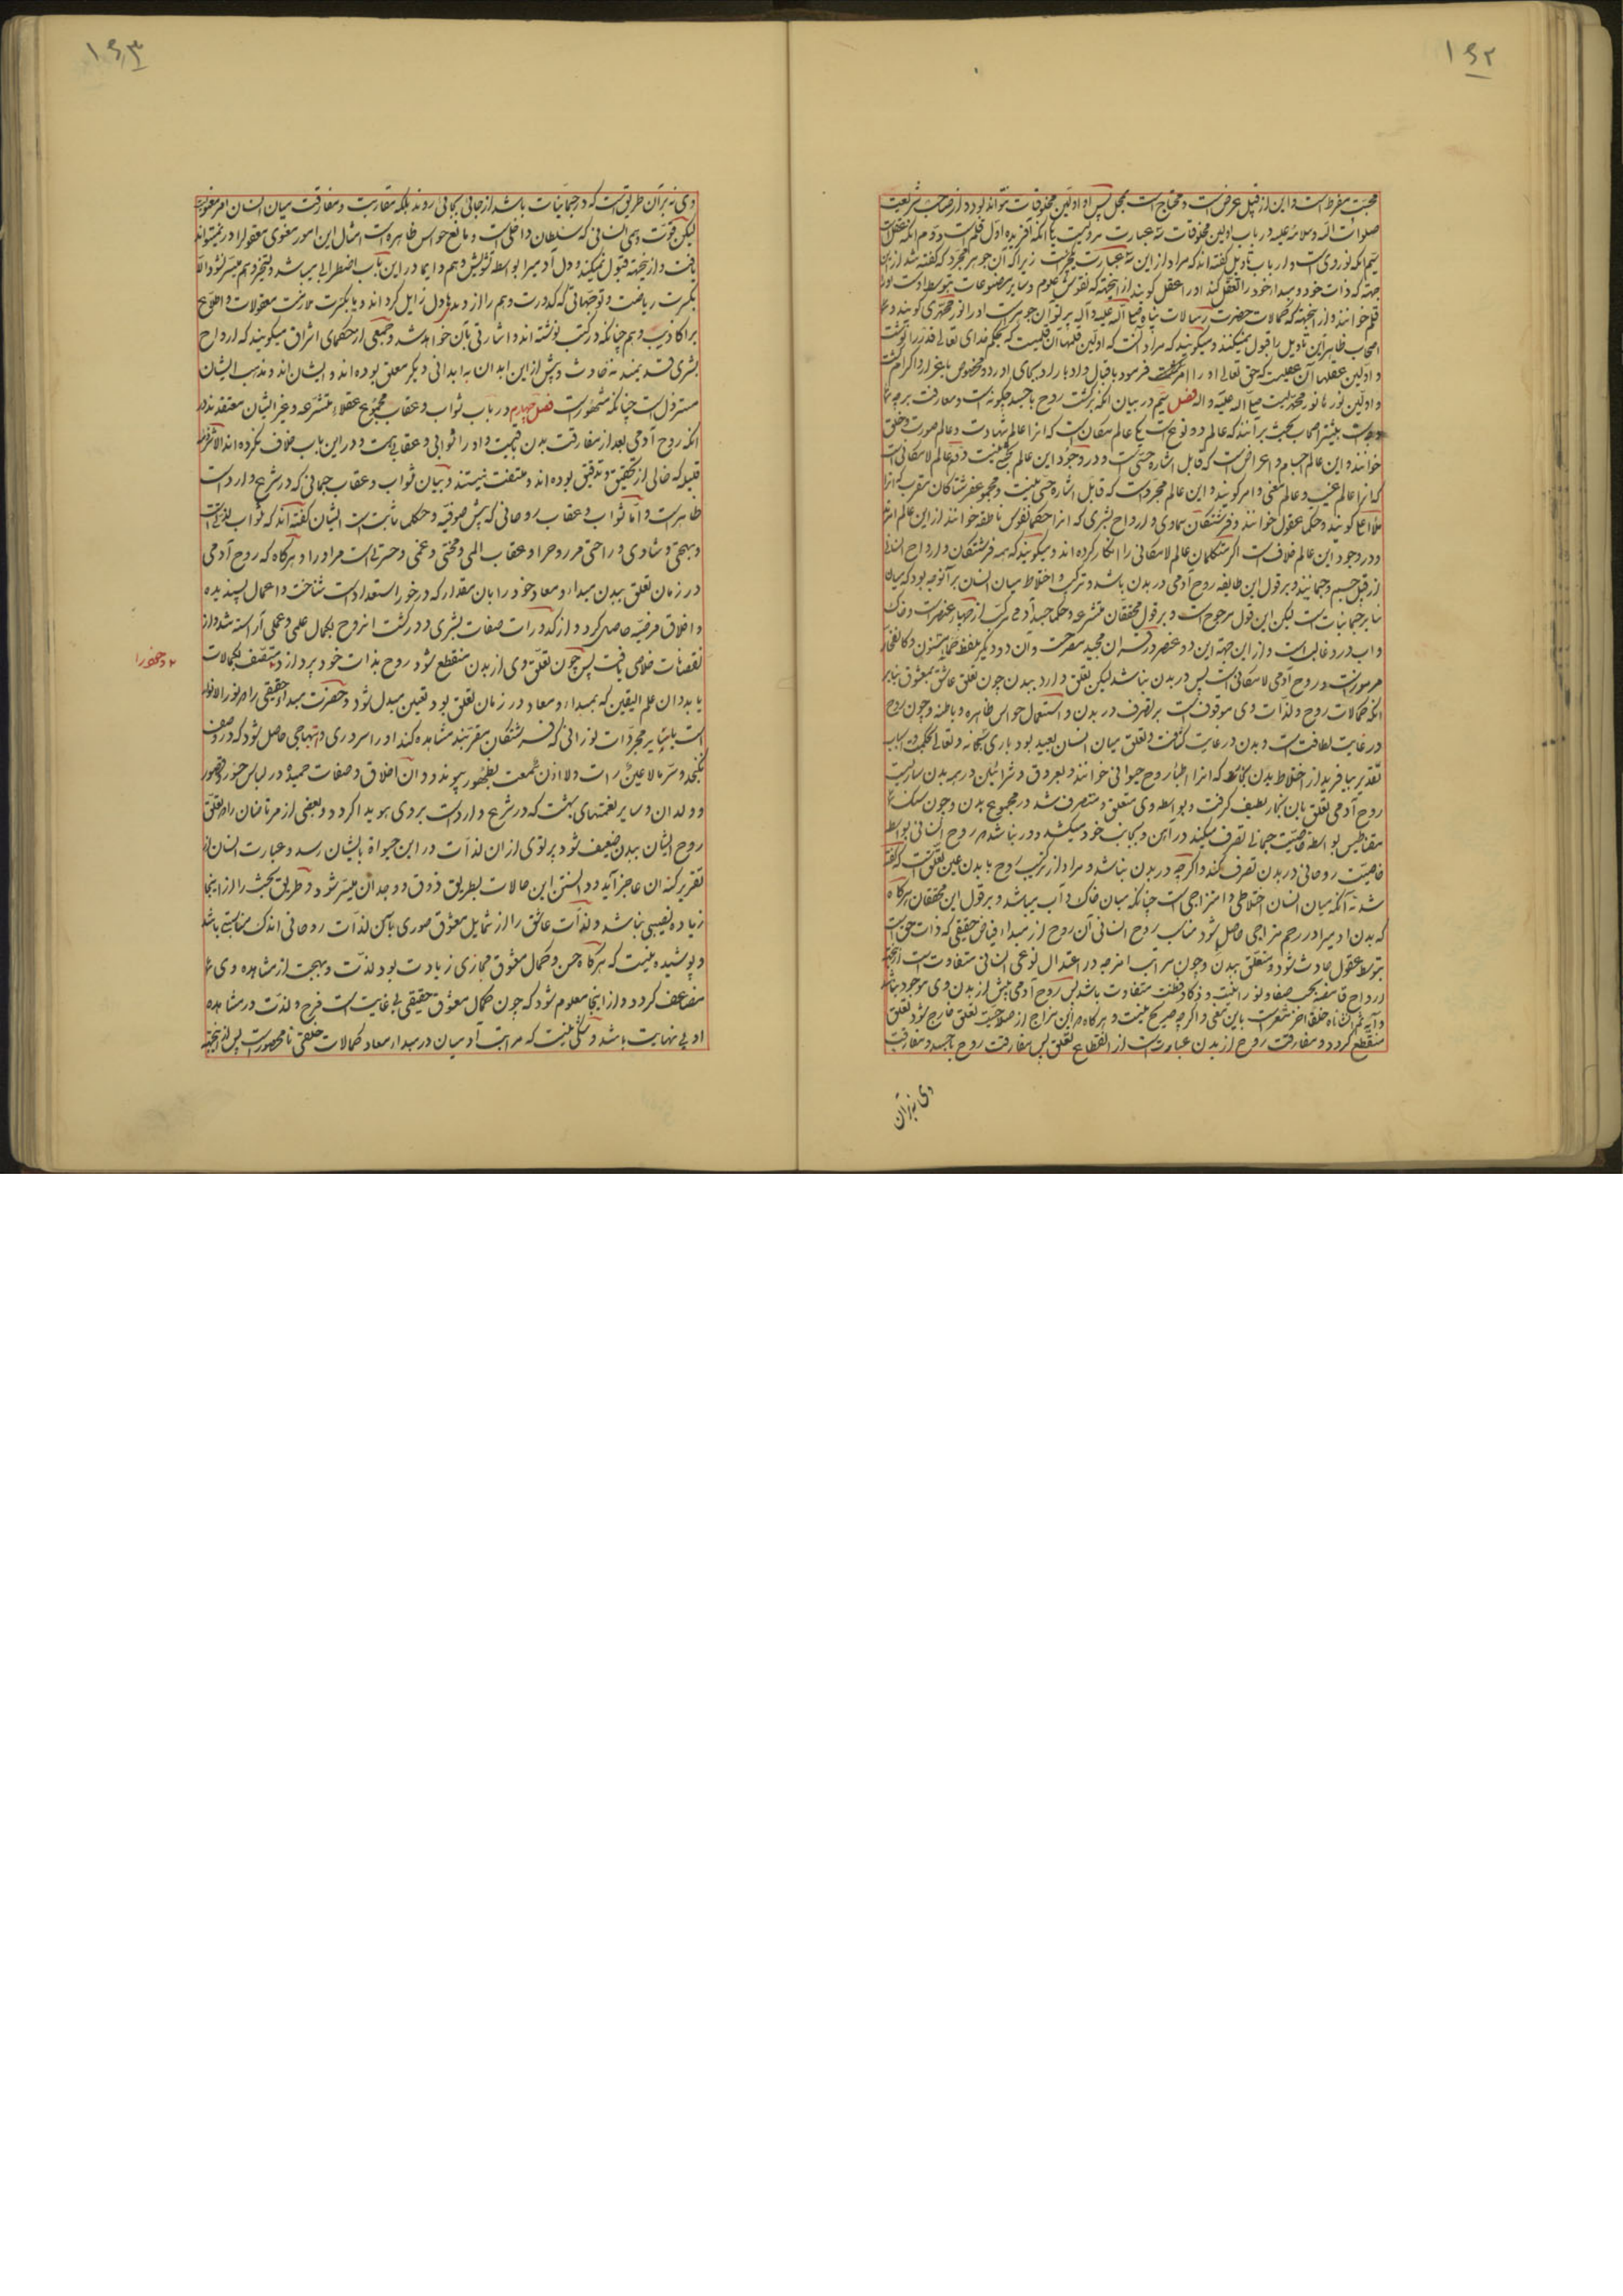 ۱۶۲
محبت مفرط است و این از قبل عرض است و محتاج است بمحل پس او اولین مخلوقات نتواند بود و از صاحب شریعت
صلوات الله و سلامه علیه در باب اولین مخلوقات سه عبارت مرویست یکی آنکه آفریده اول قلم است دوم آنکه عقل است
سیم آنکه نور وی است و ارباب تأویل گفته اند که مراد از این سه عبارت یکیست زیرا که آن جوهر مجرد که گفته شد از این
جهة که ذات خود و مبداء خود را تعقل کند او را عقل گویند از آنجهة که نقوش علوم و سایر مصنوعات بتوسط اوست او را
قلم خوانند و از آنجهة که کمالات حضرت رسالات پناه صلی الله علیه و آله پرتو آن جوهرست او را نور محمدی گویند و
اصحاب ظاهر این تأویل را قبول نمیکنند و میگویند که مراد آنست که اولین قلمها آن قلمیست که بحکم خدای تعالی قدر را نوشت
و اولین عقلها آن عقلیست که حق تعالی او را فرمود باقبال و ادبار او بجای آورد و مخصوص باعزاز و اکرام گشت
و اولین نورها نور محمدیست صلی الله علیه و اله فصل سیم در بیان آنکه برگشت روح با جسد چگونه است و مفارقت بر چه
بیشتر اصحاب بحث برآنند که عالم دو نوع است یکی عالم مکان است که آنرا عالم شهادت و عالم صورت و خلق
خوانند و این عالم اجسام و اعراض است که قابل اشاره حسی است و در وجود این عالم بحثی نیست دوم عالم لامکانی است
که آنرا عالم غیب و عالم معنی و امر گویند و این عالم مجرد است که قابل اشاره حسی نیست و مجموع فرشتکان مقرب که آنرا
ملاء اعلی گویند و حکما عقول خوانند و فرشتکان سماوی و ارواح بشری که آنرا حکما نفوس ناطقه خوانند از این عالم اند
و در وجود این عالم خلاف است اکثر متکلمان عالم لامکانی را انکار کرده اند و میگویند که همه فرشتکان و ارواح انسانی
از قبل جسم و جسمانیند و بر قول این طایفه روح آدمی در بدن باشد و ترکب و اختلاط میان ایشان بر آنوجه بود که میان
سایر جسمانیات است لیکن این قول مرجوح است و بر قول محققان متشرعه و حکما جسد آدمی مرکب از چهار عنصر است و خاک
و آب در و غالب است و از این جهة این دو عنصر در قرآن مجید مصرحست و آن دو دیگر بلفظ حماء مسنون و کالفخار
مرموزست و روح آدمی لامکانی است پس در بدن نباشد لیکن تعلق دارد ببدن چون تعلق عاشق بمعشوق بنابر
آنکه کمالات روح و لذات وی موقوف است بر تصرف در بدن و استعمال حواس ظاهره و باطنه و چون روح
در غایت لطافت است و بدن در غایت کثافت و تعلق میان ایشان بعید بود باری سبحانه و تعالی
تقدیر بیافرید از اخلاط بدن بخاری که آنرا اطباء روح حیوانی خوانند و بعروق و شرائین در همه بدن ساریست
روح آدمی تعلق بان بخار لطیف گرفت و بواسطه وی متعلق و متصرف شد در مجموع بدن و چون سنک
مقناطیس بواسطه خاصیت جسمانی تصرف میکند در آهن و بجانب خود میکشد دور نباشد که روح انسانی بواسطه
خاصیت روحانی در بدن تصرف کند و اگر چه در بدن نباشد و مراد از ترکیب روح با بدن عین تعلق است که گفته
شد نه آنکه میان ایشان اختلاطی و امتزاجی است چنانکه میان خاک و آب میباشد و بر قول این محققان هرگاه
که بدن آدمی را در رحم مزاجی حاصل شود مناسب روح انسانی آن روح از مبداء فیاض حقیقی که ذات حق است
بتوسط عقول حادث شود و متعلق ببدن و چون مراتب امزجه در اعتدال نوعی انسانی متفاوت است از اینجهة
ارواح فایضه بحسب صفا و نورانیت و ذکا و فطنت متفاوت باشد پس روح آدمی پیش از بدن وی موجود نباشد
و آیه ثم انشاناه خلقا اخر مشعرست باین معنی و اگر چه صریح نیست و هرگاه که این مزاج از صلاحیت تعلق خارج شود تعلق
منقطع گردد و مفارقت روح از بدن عبارتست از انقطاع تعلق پس مفارقت روح با جسد و مقارنت
وی نه بر آن
۱۶۳
وی نه بر آن طریق است که در جسمانیات باشد از جائی بجائی روند بلکه مقاربت و مفارقت میان ایشان امر معنویست
لیکن قوت وهمی انسانی که سلطان داخلی است و مانع حواس ظاهره است امثال این امور معنوی معقول را در نمیتواند
یافت و از اینجهة قبول نمیکند و دل آدمی را بواسطه تشویش وهم دایما در این باب اضطرابی میباشد و تسخیر وهم میسر نشود الا
بکثرت ریاضت و توجهاتی که کدورت وهم را از دیدهٔ دل زایل گرداند و یا بکثرت ممارست معقولات و اطلاع
بر اکاذیب وهم چنانکه در کتب نوشته اند و اشارتی بآن خواهد شد و جمعی از حکمای اشراق میگویند که ارواح
بشری قدیمند نه حادث و پیش از این ابدان به ابدانی دیگر معلق بوده اند و ایشان اند و مذهب ایشان
مستردل است چنانکه مشهورست فصل چهارم در باب ثواب و عقاب مجموع عقلاء متشرعه و غیر ایشان معتقدند بر
آنکه روح آدمی بعد از مفارقت بدن باقیست و او را ثوابی و عقابی هست و در این باب خلاف نکرده اند الا شرذمه
قلیله که خالی از تحقیق و تدقیق بوده اند و ملتفت نیستند و بیان ثواب و عقاب جسمانی که در شرع وارد است
ظاهرست و اما ثواب و عقاب روحانی که پیش صوفیه و حکما ثابت است ایشان گفته اند که ثواب لذتی است
و بهجتی و شادی و راحتی مر روح را و عقاب المی و محنتی و غمی و حسرتی است مر او را و هرگاه که روح آدمی
در زمان تعلق ببدن مبداء و معاد خود را بان مقدار که در خور استعداد است شناخت و اعمال پسندیده
و اخلاق مرضیه حاصل کرد و از کدورات صفات بشری در گذشت آنروح بکمال علمی و عملی آراسته شد و از
نقصانات خلاصی یافت پس چون تعلق وی از بدن منقطع شود روح بذات خود پردازد و متصف بکمالات
یابد و آن علم الیقین که بمبداء و معاد در زمان تعلق بود بعین مبدل شود و حضرت مبداء حقیقی را که نور الانوار
است با سایر مجردات نورانی که فرشتکان مقربند مشاهده کند و او را سروری و ابتهاجی حاصل شود که در وصف
نگنجد و سر ما لا عین رأت و لا اذن سمعت بظهور پیوندد و آن اخلاق و صفات حمیده در لباس حور و قصور
و ولدان و سایر نعمتهای بهشت که در شرع وارد است بر وی هویدا گردد و بعضی از مرتاضان را که تعلق
روح ایشان ببدن ضعیف شود پرتوی از آن لذات در این حیوة بایشان رسد و عبارت ایشان از
تقریر کنه آن عاجز آید و دانستن این حالات بطریق ذوق و وجدان میسر شود و طریق بحث را از اینجا
زیاده نصیبی نباشد و لذات عاشق را از شمایل معشوق صوری بآن لذات روحانی اندک مناسبتی باشد
و پوشیده نیست که هرگاه حسن و کمال معشوق مجازی زیادت بود لذت و بهجت از مشاهده وی
مضاعف گردد و از اینجا معلوم شود که چون کمال معشوق حقیقی بی غایت است فرح و لذت در مشاهده
او بی نهایت باشد و شکی نیست که مراتب آدمیان در مبداء و معاد و کمالات خلقی نامحصورست پس از اینجهة
و حضور را